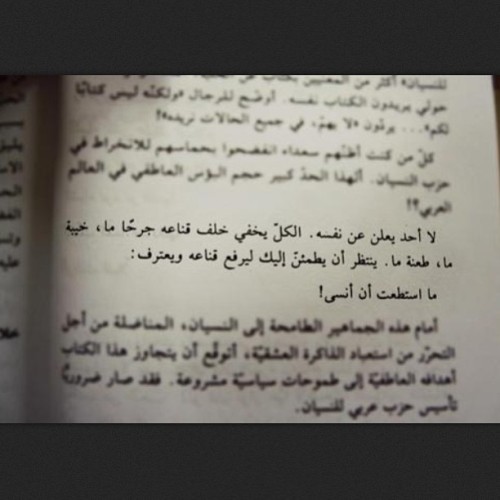 للنسيان» أكثر من المعنيين بكتاب عن
حولي يريدون الكتاب نفسه. أوضح للرجال «ولكنّه ليس كتابًا
لكم»... يردّون «لا يهمّ، في جميع الحالات نريده»!
كلّ من كنت أظنّهم سعداء انفضحوا بحماسهم للانخراط في
حزب النسيان. ألهذا الحدّ كبير حجم البؤس العاطفي في العالم
العربي؟!
لا أحد يعلن عن نفسه. الكلّ يخفي خلف قناعه جرحًا ما، خيبة
ما، طعنة ما. ينتظر أن يطمئنّ إليك ليرفع قناعه ويعترف:
ما استطعت أن أنسى!
أمام هذه الجماهير الطامحة إلى النسيان، المناضلة من أجل
التحرّر من استعباد الذاكرة العشقيّة، أتوقّع أن يتجاوز هذا الكتاب
أهدافه العاطفيّة إلى طموحات سياسيّة مشروعة. فقد صار ضروريًّا
تأسيس حزب عربي للنسيان.